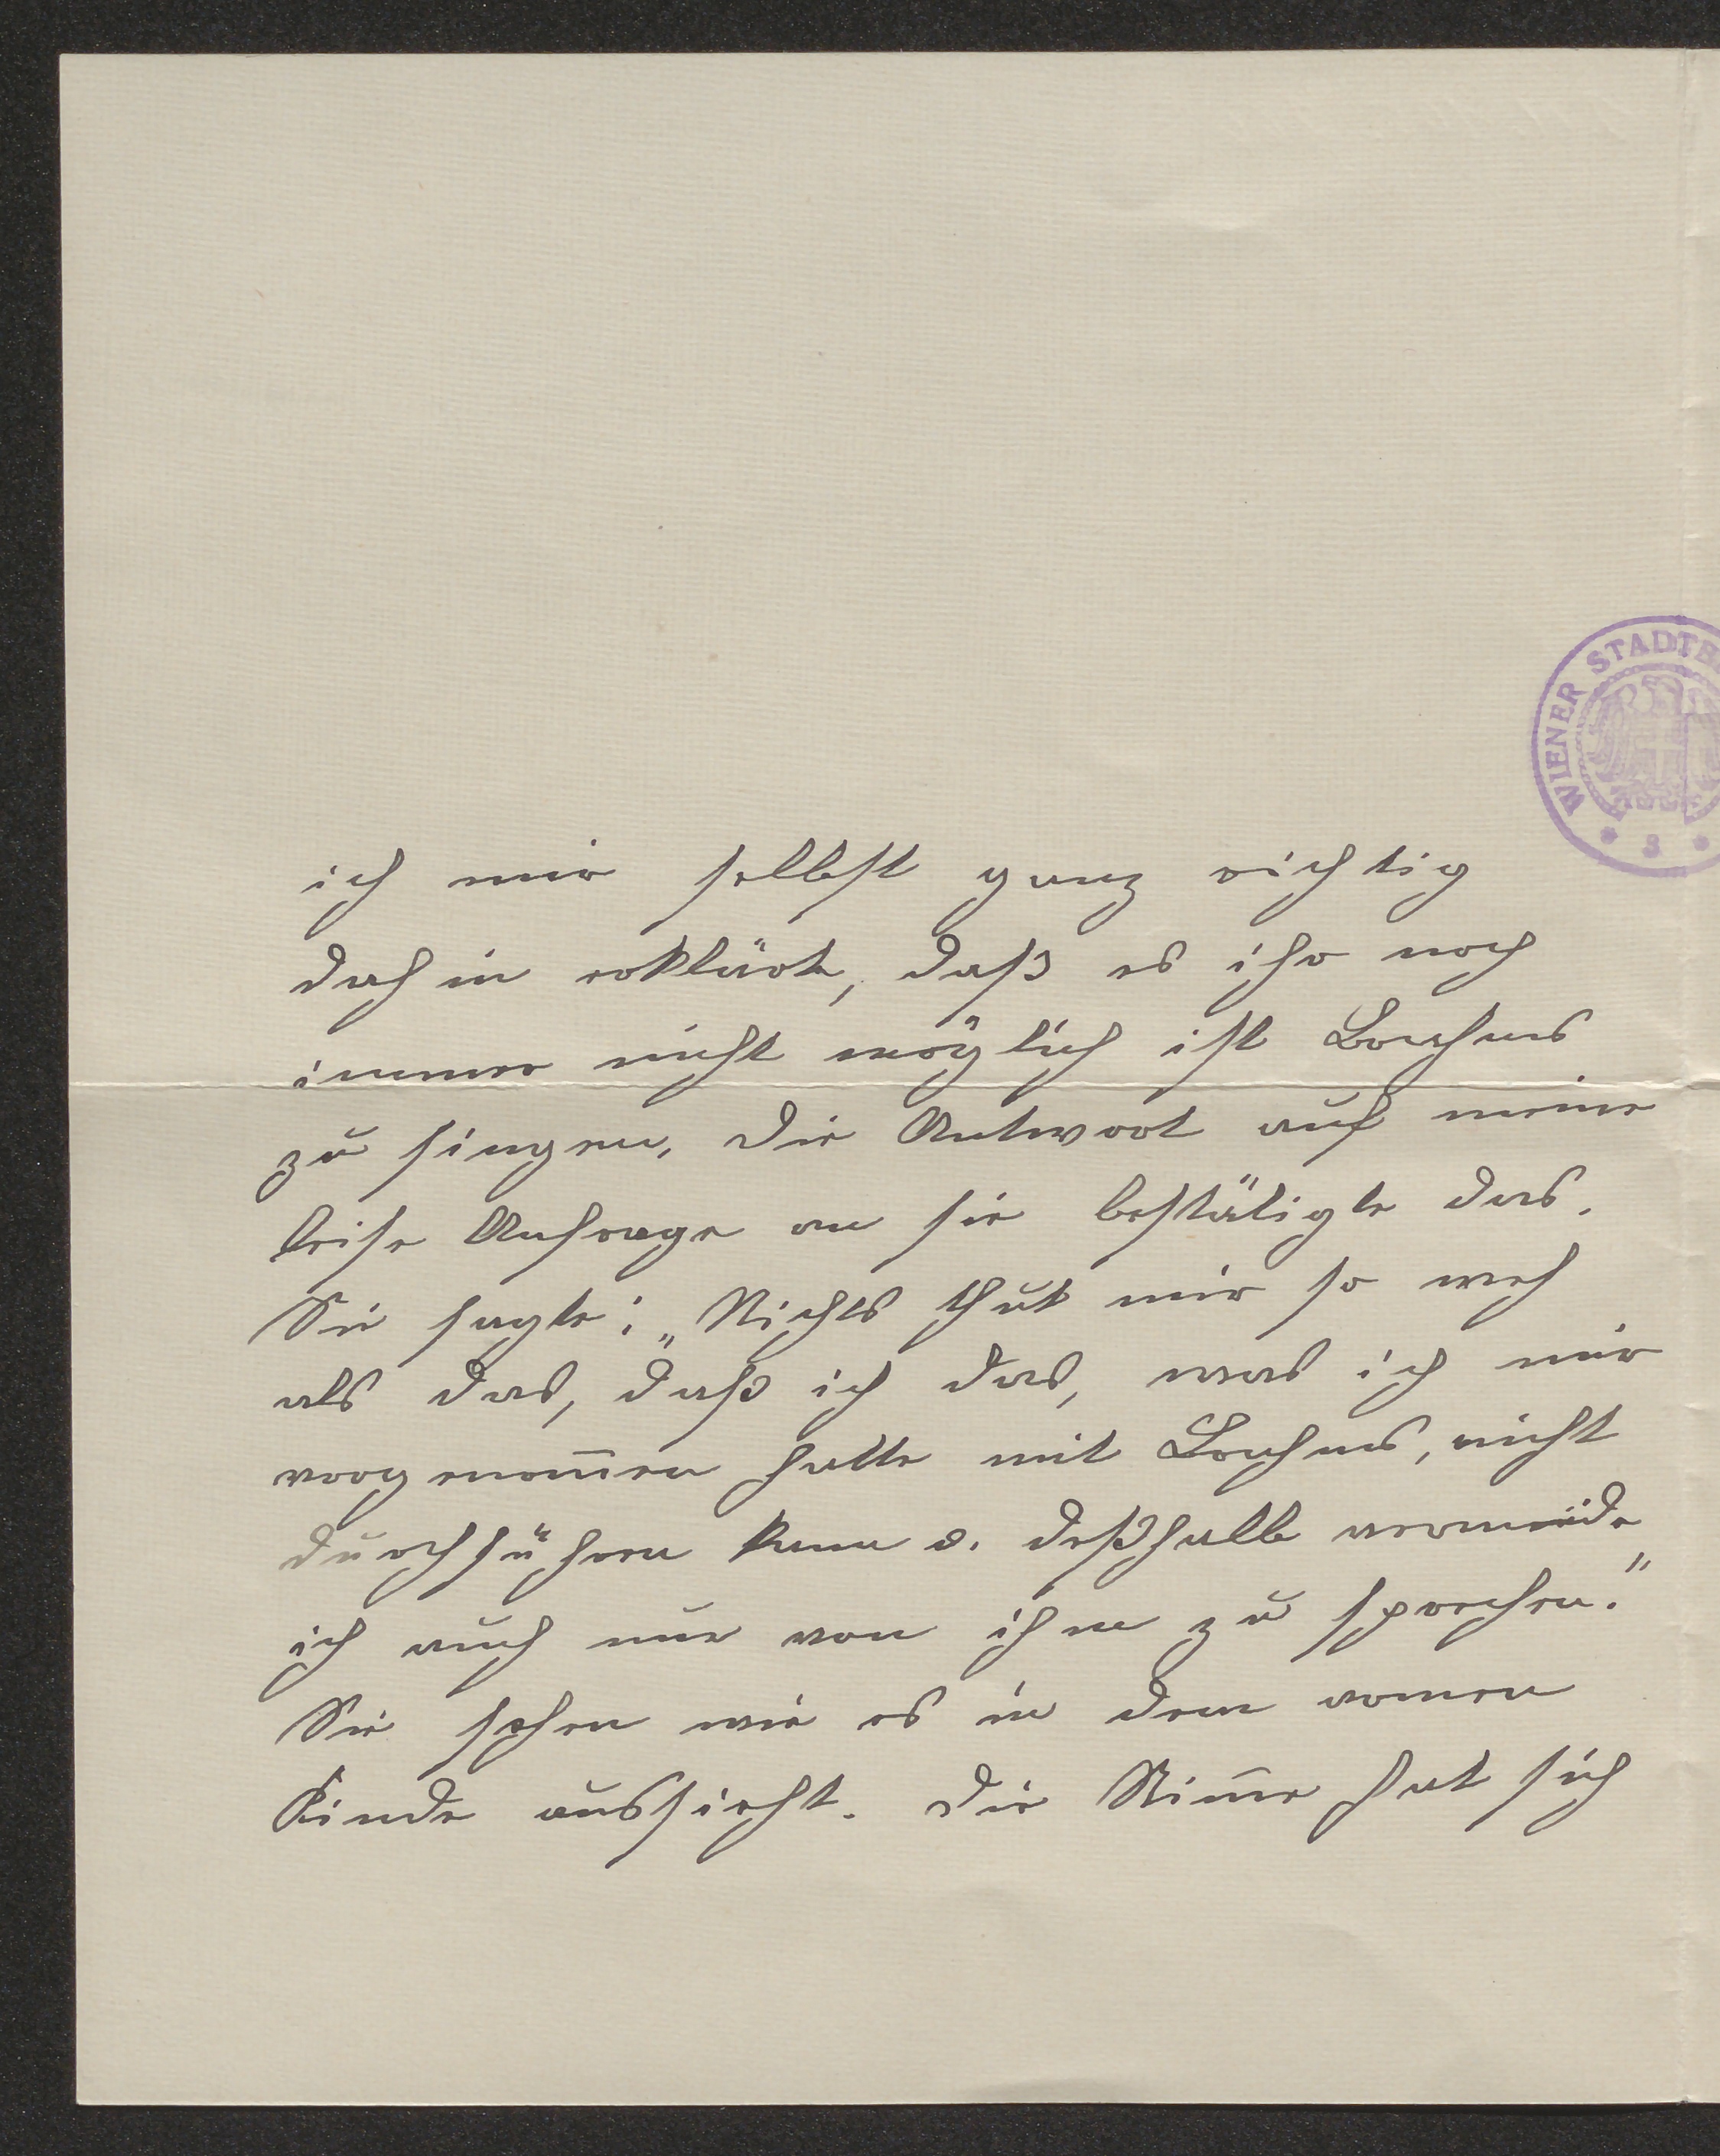 WIENER STADTB
* 3 *
ich mir selbst ganz richtig
dahin erklärte, daß es ihr noch
immer nicht möglich ist Brahms
zu singen, die Antwort auf meine
leise Anfrage an sie bestätigte das.
Sie sagte: „Nichts thut mir so weh
als das, daß ich das, was ich mir
vorgenom̄en hatte mit Brahms, nicht
durchführen kann u. deßhalb vermeide
ich auch nur von ihm zu sprechen.“
Sie sehen wie es in dem armen
Kinde aussieht. Die Stim̄e hat sich